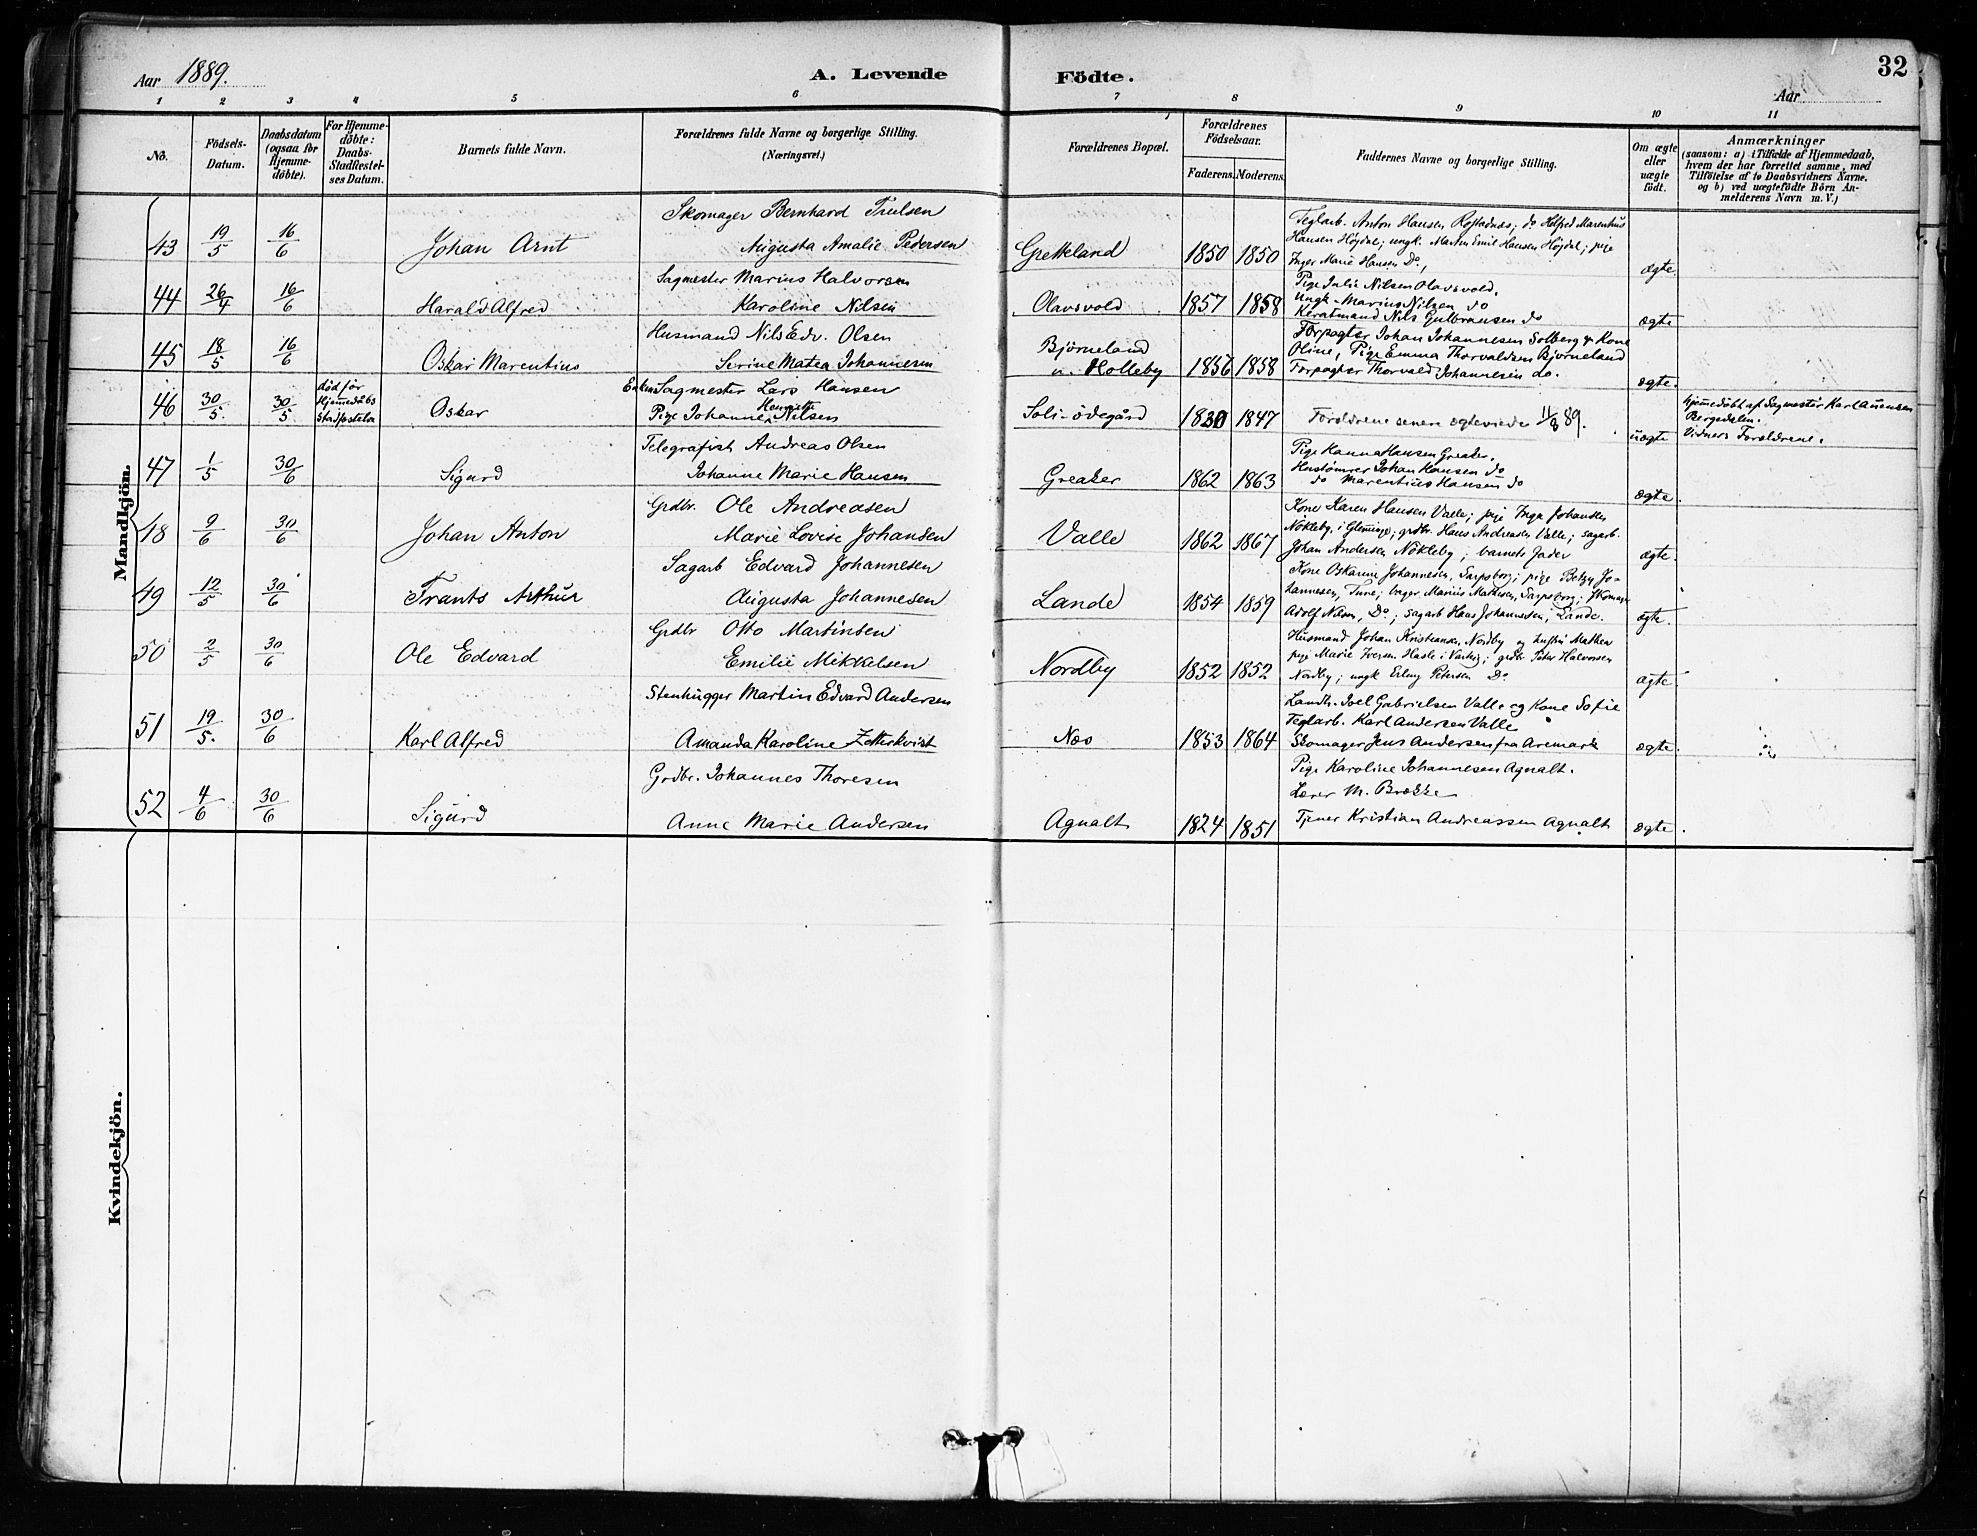 Aar 1889.
A. Levende Födte.
32
Aar
1 2 3 4 5 6 7 8 9 10 11
No.
Födsels-Datum.
Daabsdatum (ogsaa for Hjemme-döbte).
For Hjemme-döbte: Daabs-Stadfæstel-ses Datum.
Barnets fulde Navn.
Forældrenes fulde Navne og borgerlige Stilling.
(Næringsvei.)
Forældrenes Bopæl.
Forældrenes Födselsaar.
Faderens. Moderens.
Faddernes Navne og borgerlige Stilling.
Om ægte eller uægte födt.
Anmærkninger
(saasom: a) i Tilfælde af Hjemmedaab,
hvem der har forrettet samme, med
Tilföielse af to Daabsvidners Navne.
og b) ved uægtefödte Börn An-
melderens Navn m. V.)
Mandkjön.
Skomager Bernhard Trulsen
43 19/5 16/6 Johan Arnt Augusta Amalie Pedersen Gretteland 1850 1850
Teglarb. Anton Hansen, do Helfred Marenthius
Hansen Högdal; ungk. Martin Emil Hansen Högdal; pige
Inger Marie Hansen Do, ægte
Sagmester Marius Halvorsen
44 26/4 16/6 Harald Alfred Karoline Nilsen Olavsvold 1857 1858
Pige Julie Nilsen Olavsvold.
Ungk. Marius Nilsen do
Nils Gulbransen do ægte
Husmand Nils Edv. Olsen
45 18/5 16/6 Oskar Marentius Serine Matea Johannesen Bjørneland u. Holleby 1856 1858
Forpagter Johan Johannesen Solberg & Kone
Oline, Pige Emma Thorvaldsen Bjørneland
Forpagter Thorvald Johannesen do. ægte.
Enkem. Sagmester Lars Hansen
46 30/5. 30/5 død før Hjemmedaabs Stadfæstelse Oskar Pige Johanne Henriette Nilsen Soli-ødegård 1830 1847
Forældrene senere ægteviede 11/8 89. uægte
Hjemedöbt af Sagmester Karl
Bergsdalen.
Vidner: Forældrene.
Telegrafist Andreas Olsen
47 1/5 30/6 Sigurd Johanne Marie Hansen Greaker 1862 1863
Pige Hanna Hansen Greaker.
Hustømrer Johan Hansen do
do Marentius Hansen do ægte.
Grdbr. Ole Andreasen
48 9/6 30/6 Johan Anton Marie Lovise Johansen Valle 1862 1867
Kone Karen Hansen Valle; pige Inga Johansen
Nökleby i Glemminge; grdbr. Hans Andreasen Valle; sagarb.
Johan Andersen Nökleby; barnets fader ægte.
Sagarb Edvard Johannesen
49 12/5 30/6 Frants Arthur Augusta Johannesen Lande 1854 1859
Kone Oskarine Johannesen, Sarpsborg; pige Betzy Jo-
hannesen, Tune; bager Marius Mathisen, Sarpsborg; Skomager
Adolf Nilsen, Do; sagarb Hans Johannesen, Lande. ægte.
Grdbr Otto Martinsen
50 2/5 30/6 Ole Edvard Emilie Mikkelsen Nordby 1852 1852
Husmand Johan Kristiansen Nordby og hustru Mathea
pige Marie Iversen Hasle i Varteig; grdbr. Peter Halvorsen
Nordby; ungk Erling Petersen Do ægte.
Stenhugger Martin Edvard Andersen
51 19/5. 30/6 Karl Alfred Amanda Karoline Zetterkvist Næs 1853 1864
Landh. Joel Gabrielsen Valle og Kone Sofie
Teglarb. Karl Andersen Valle
Skomager Jens Andersen fra Aremark ægte.
Grdbr. Johannes Thoresen
52 4/6 30/6 Sigurd Anne Marie Andersen Agnalt 1824 1851
Pige Karoline Johannesen Agnalt.
Lærer M. Brække
Tjener Kristian Andreassen Agnalt ægte.
Kvindekjön.